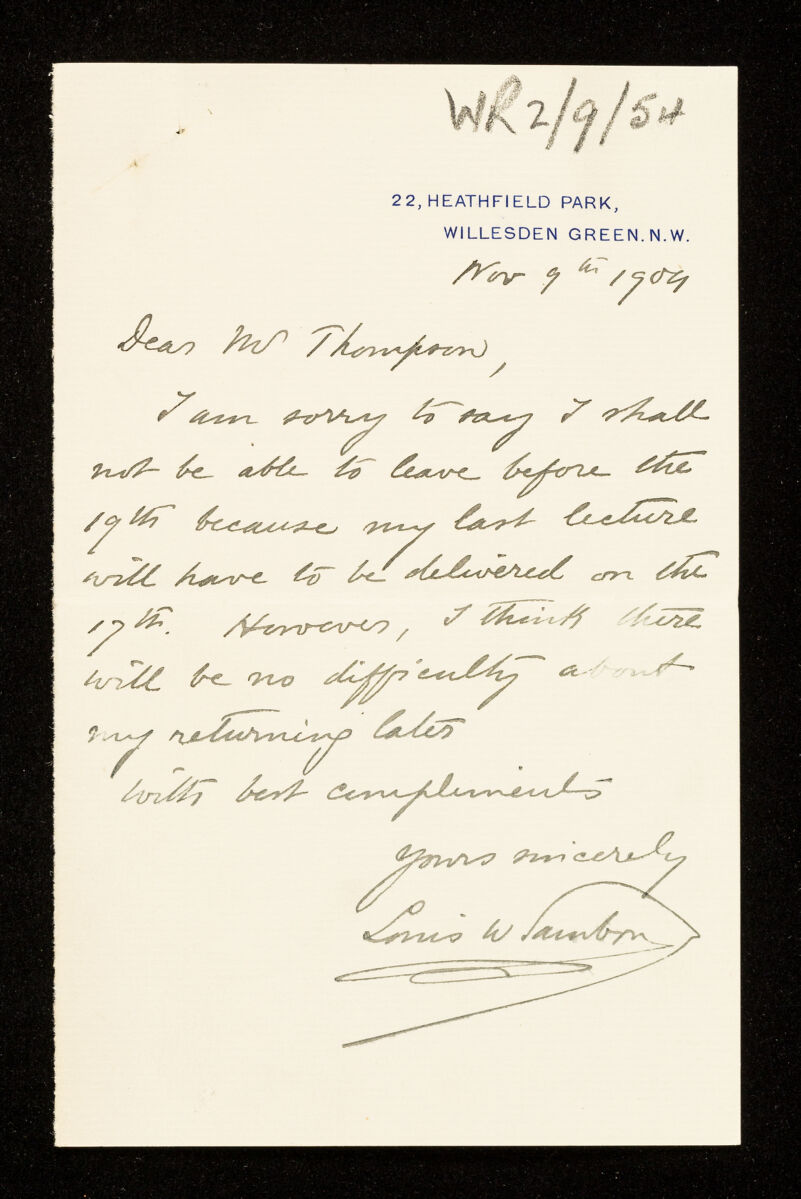 WR2/9/54
22, HEATHFIELD PARK,
WILLESDEN GREEN. N.W.
Nov 9th 1904
Dear Mr Thompson,
I am sorry to say I shall
not be able to leave before the
19th because my last lecture
will have to be delivered on the
17th. However, I think there
will be no difficulty about
my returning later
with best compliments
Yours sincerely
Louis W Sambon